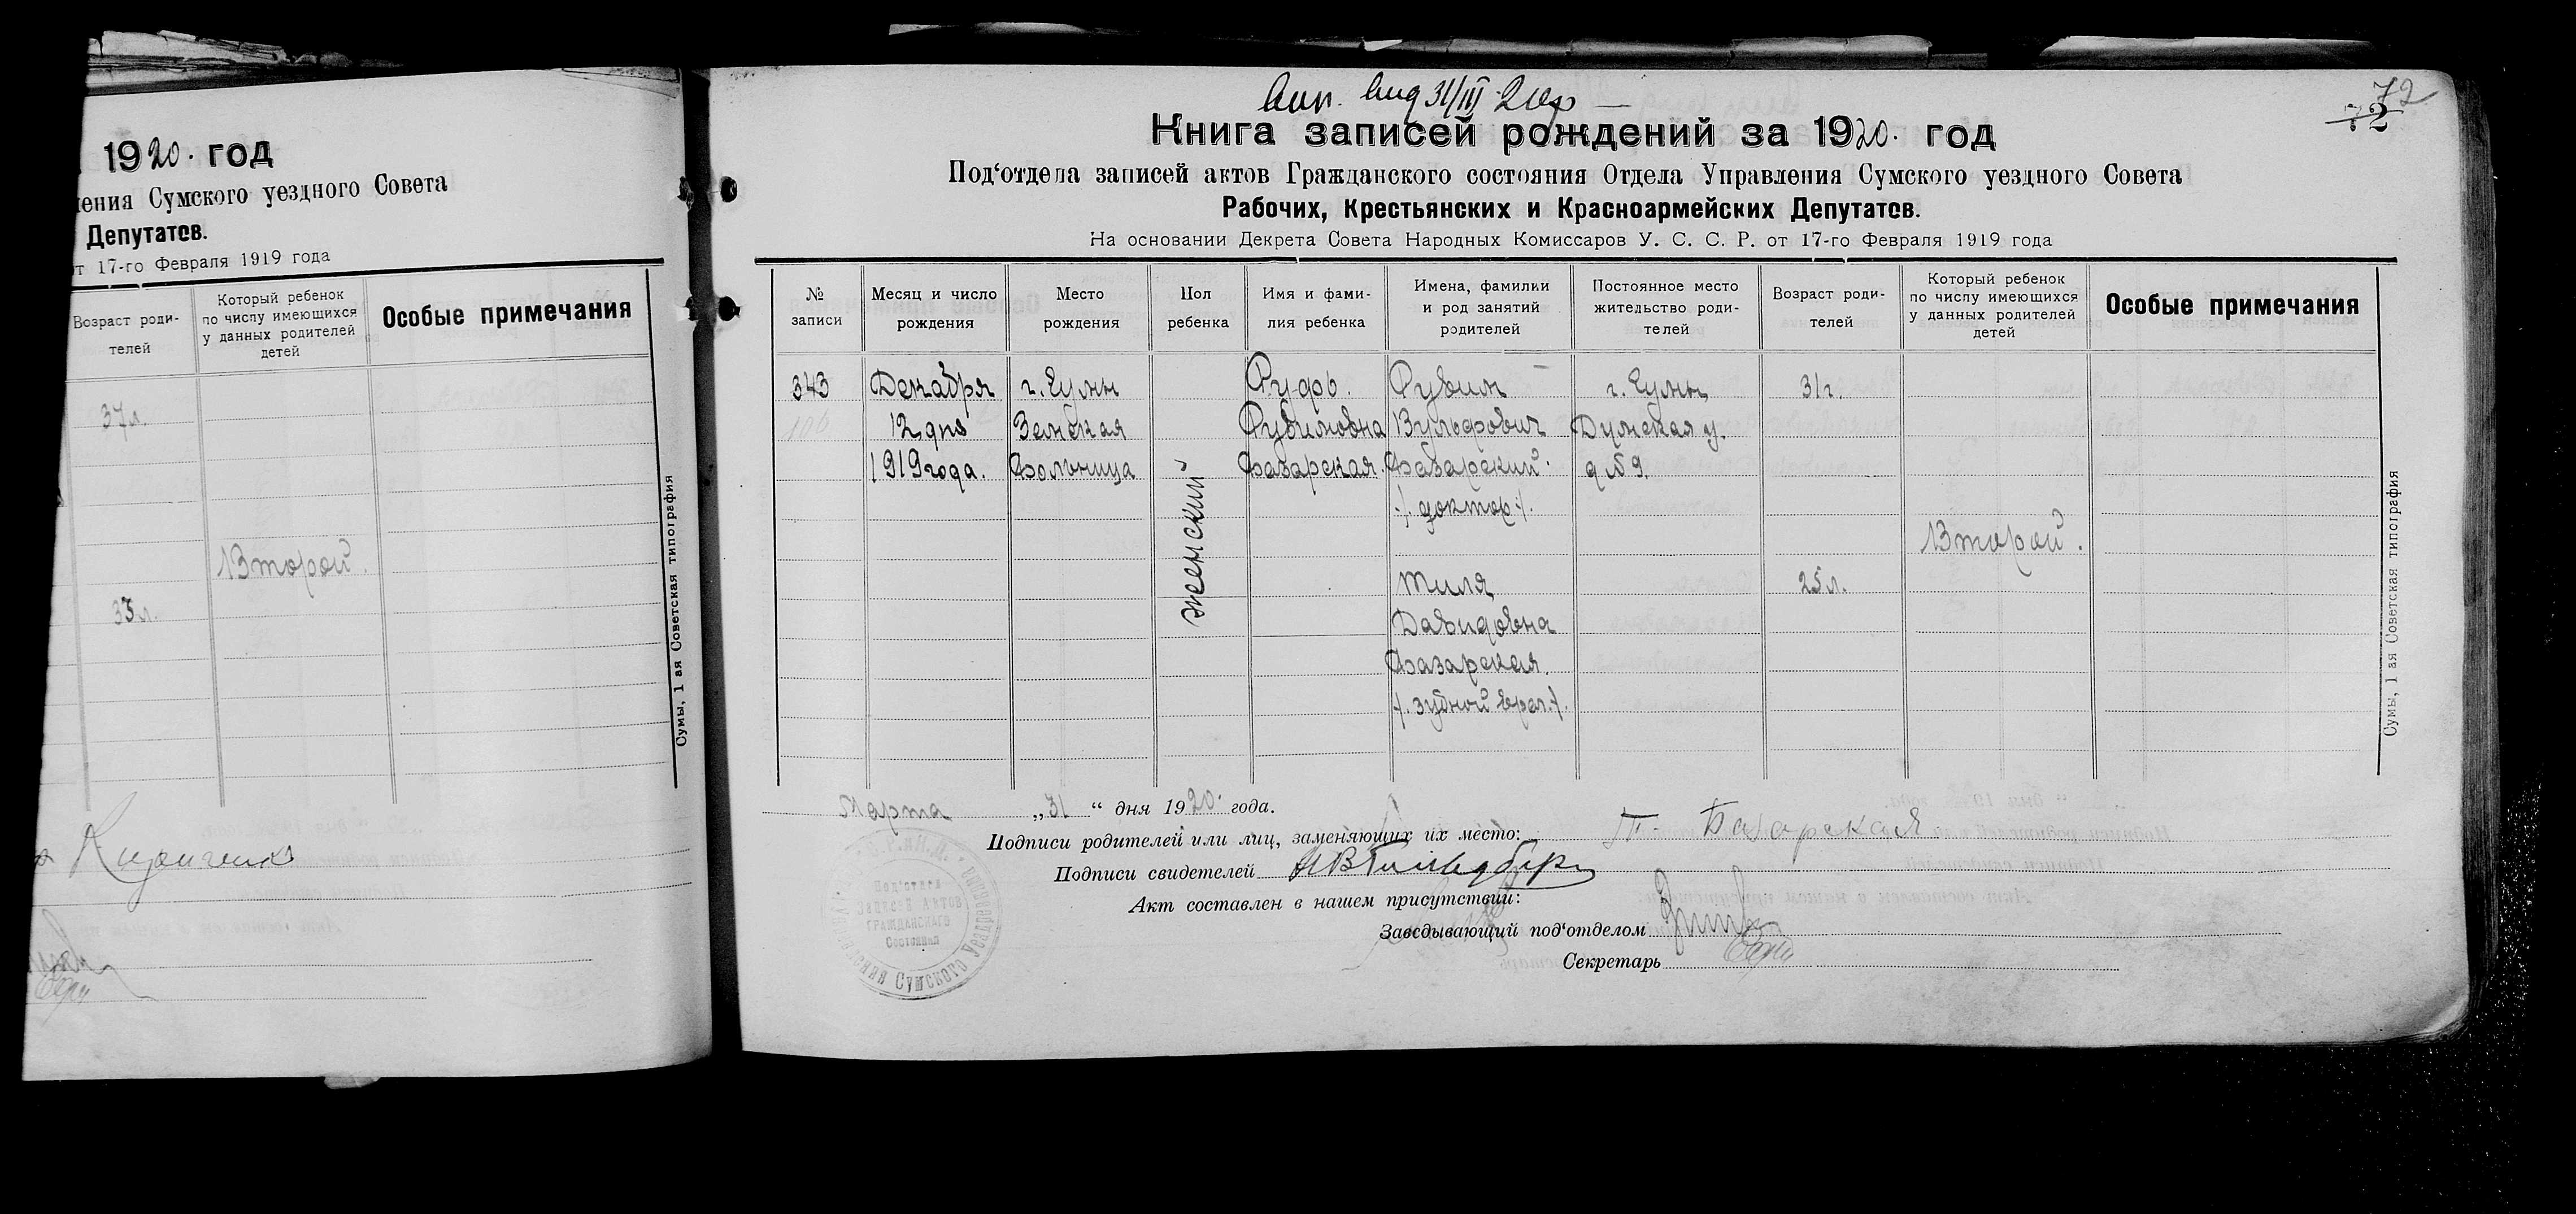 1920. год
ления Сумского уездного Совета
Депутатов.
от 17-го Февраля 1919 года
Возраст роди-
телей
Который ребенок
по числу имеющихся
у данных родителей
детей
Особые примечания
37л.
Второй.
33л.
Сумы, 1 ая Советская типография
31/III 20
72
72
Книга записей рождений за 1920. год
Под‘отдела записей актов Гражданского состояния Отдела Управления Сумского уездного Совета
Рабочих, Крестьянских и Красноармейских Депутатов.
На основании Декрета Совета Народных Комиссаров У. С. С. Р. от 17-го Февраля 1919 года
№
записи
Месяц и число
рождения
Место
рождения
Пол
ребенка
Имя и фами-
лия ребенка
Имена, фамилии
и род занятий
родителей
Постоянное место
жительство роди-
телей
Возраст роди-
телей
Который ребенок
по числу имеющихся
у данных родителей
детей
Особые примечания
343
106
Декабря
12 дня
1919 года.
г. Сумы
Земская
Больница
женский
Руфь.
Рувимовна
Базарская.
Рувим
Вульфович
Базарский.
/. доктор ./.
Тиля
Давидовна
Базарская.
/. зубной врач./.
г. Сумы,
Думская у.
д № 9.
31г.
25л.
Второй.
Сумы, 1 ая Советская типография
Марта „31“ дня 1920. года.
Подписи родителей или лиц, заменяющих их место: Т. Базарская
Подписи свидетелей
Акт составлен в нашем присутствии:
Заведывающий под‘отделом
Секретарь
Под‘отдел
Записей Актов
Гражданского
Состояния
Сумского Уездного